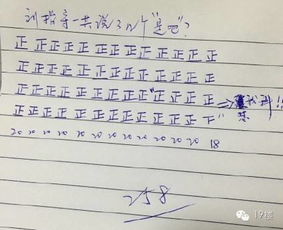 刘指导一共说了几个"是吧"?
正 正 正 正 正 正 正 正 正 正 正 正
正 正 正 正 正 正 正 正 正 正 正 正
正 正 正 正 正 正 正 正 正 正 正 正
正 正 正 正 正 正 正 正 正 正 正 下
20 20 20 20 20 20 20 20 20 20 20 18
258
19楼